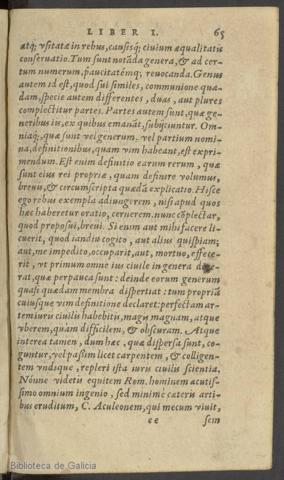 LIBER I. 65
atq; vsitatæ in rebus, causisq; ciuium æqualitatis
conseruatio. Tum sunt notāda genera, & ad cer-
tum numerum, paucitatémq; reuocanda. Genus
autem id est, quod sui similes, communione qua-
dam, specie autem differentes, duas, aut plures
complectitur partes. Partes autem sunt, quæ ge-
neribus iis, ex quibus emanāt, subijciuntur. Om-
niaq; quæ sunt vel generum, vel partium nomi-
na, definitionibus, quam vim habeant, est expri-
mendum. Est enim definitio earum rerum, quæ
sunt eius rei propriæ, quam definire volumus,
breuis, & circumscripta quædā explicatio. Hisce
ego rebus exempla adiungerem, nisi apud quos
hæc haberetur oratio, cernerem. nunc cōplectar,
quod proposui, breui. Si enim aut mihi facere li-
cuerit, quod iandiu cogito, aut alius quispiam;
aut, me impedito, occuparit, aut, mortuo, effece-
rit, vt primum omne ius ciuile in genera di
rat, quæ perpauca sunt: deinde eorum generum
quasi quædam membra dispertiat: tum propriā
cuiusque vim definitione declaret: perfectam ar-
tem iuris ciuilis habebitis, magis magnam, atque
vberem, quàm difficilem, & obscuram. Atque
interea tamen, dum hæc, quæ dispersa sunt, co-
guntur, vel passim licet carpentem, & colligen-
tem vndique, repleri ista iuris ciuilis scientia.
Nónne videtis equitem Rom. hominem acutis-
simo omnium ingenio, sed minimè cæteris arti-
bus eruditum, C. Aculeonem, qui mecum viuit,
ee sem
Biblioteca de Galicia